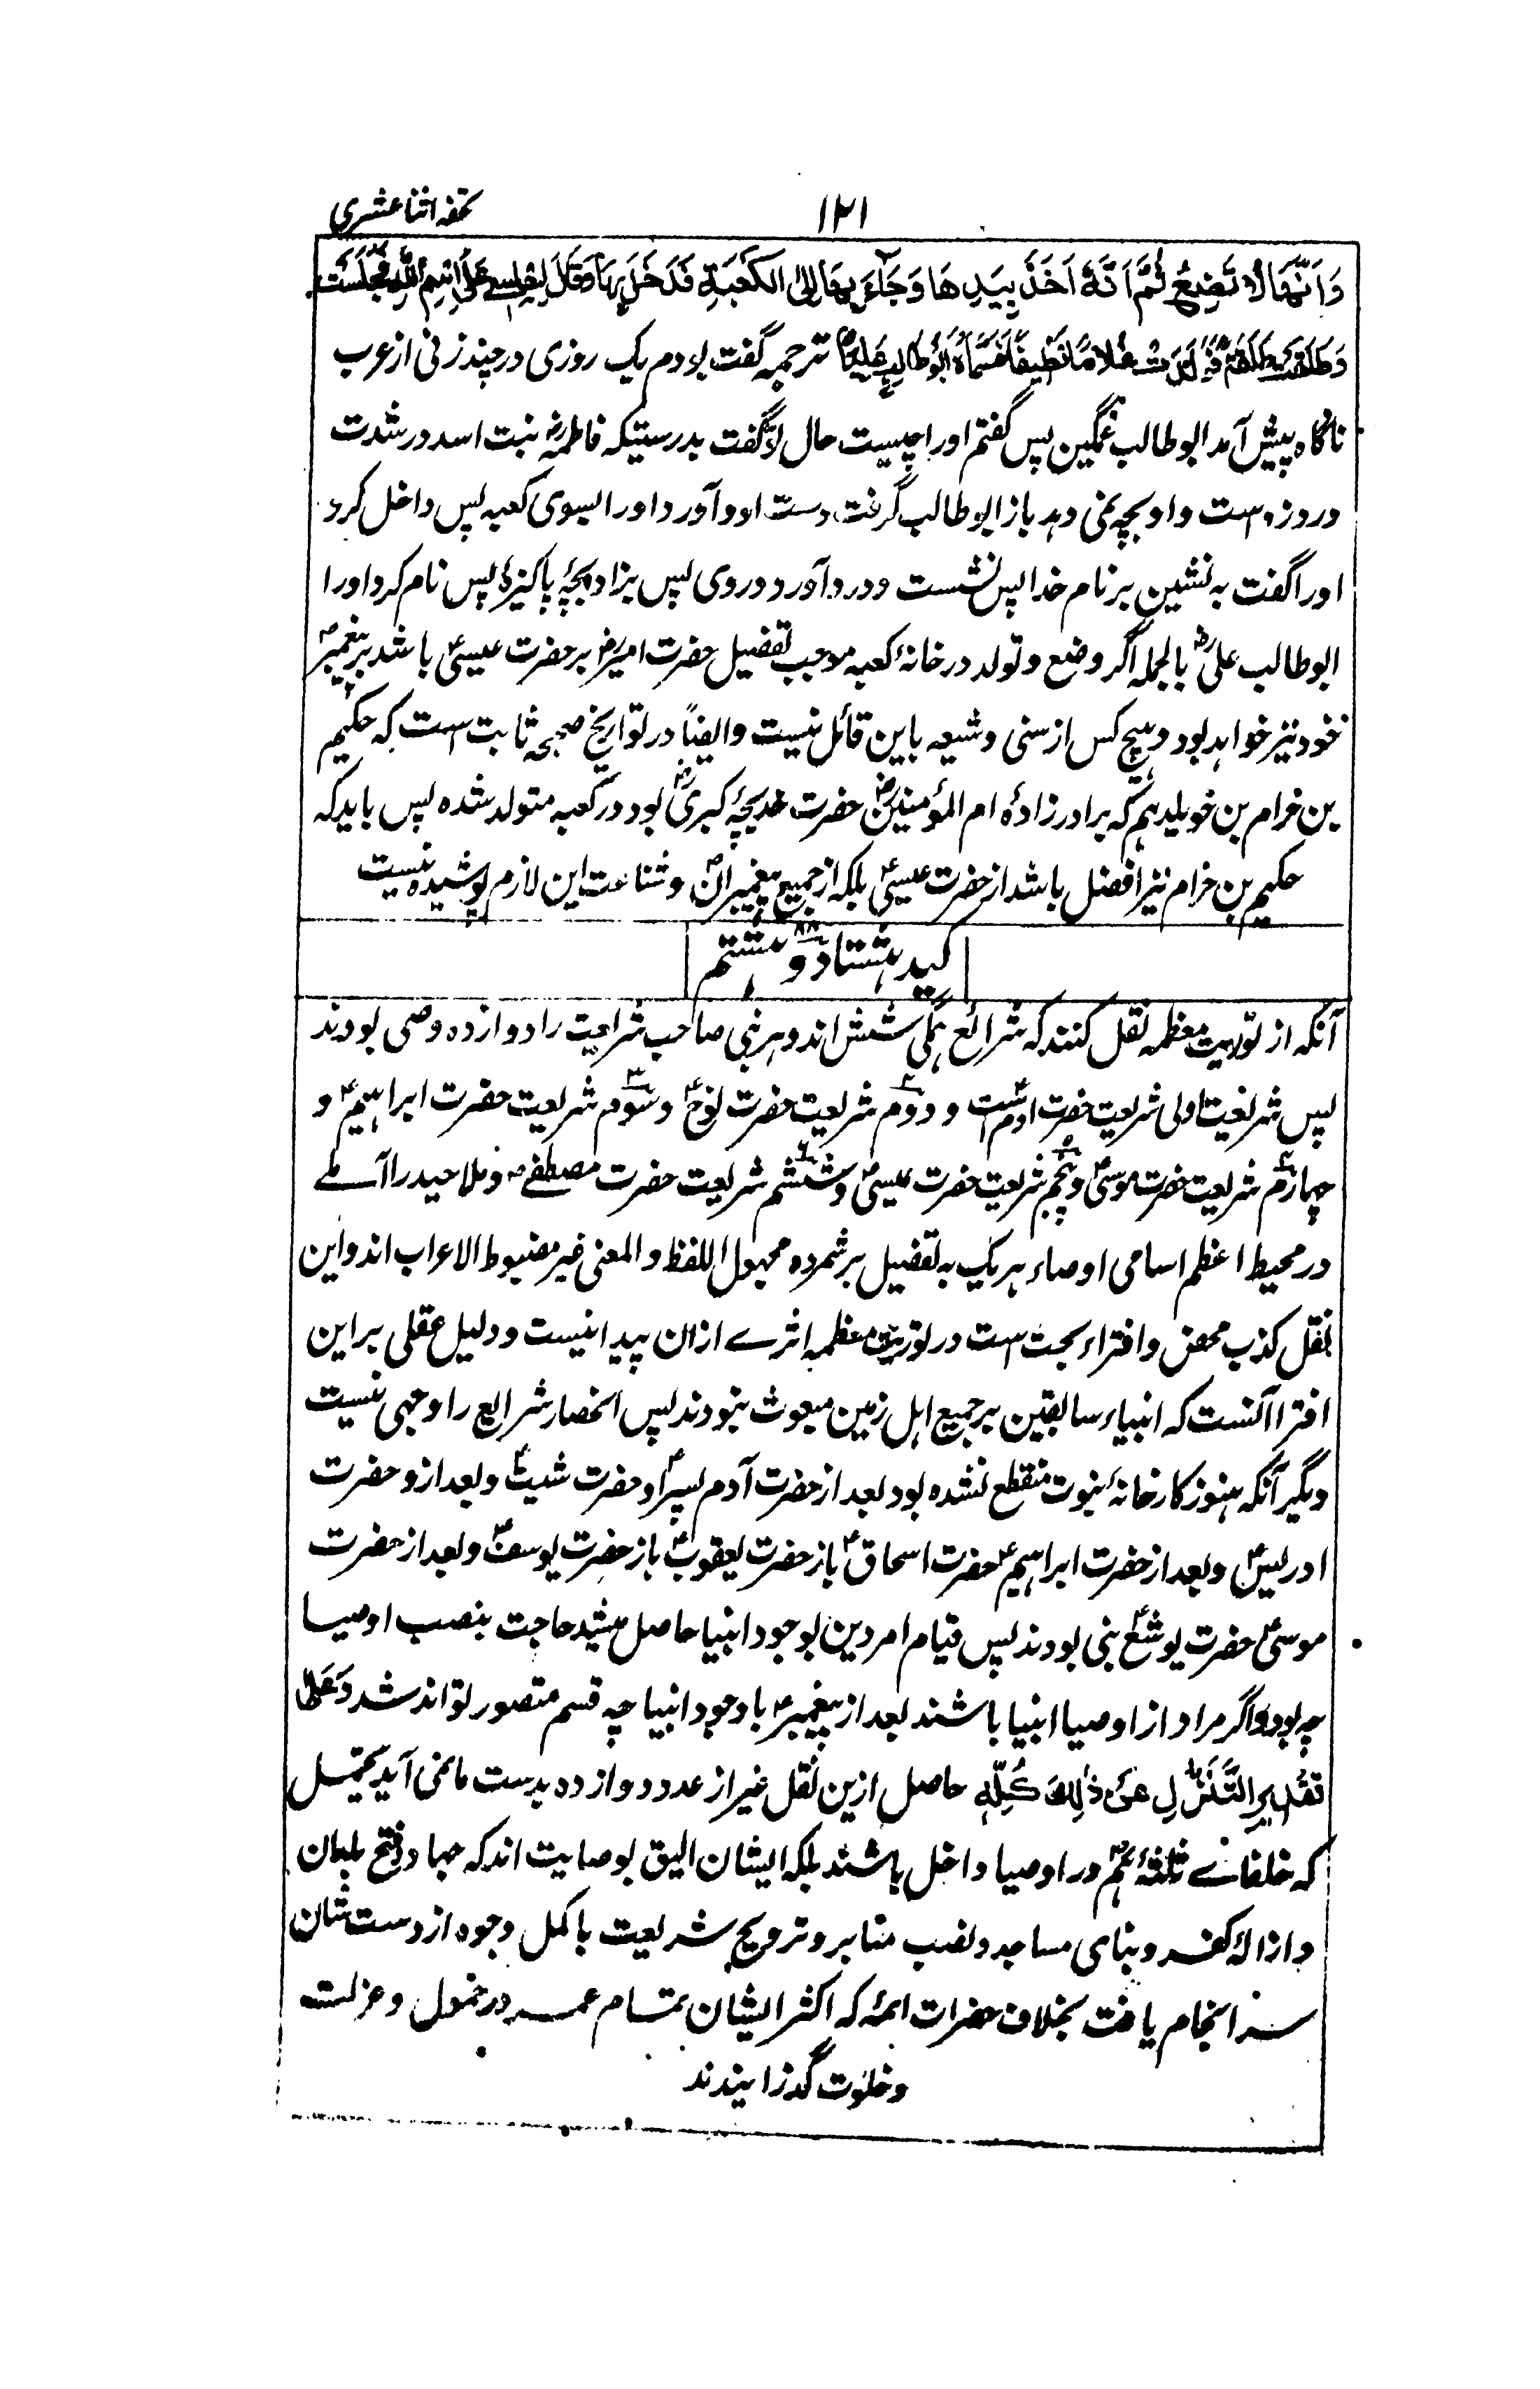 تحفه اثنا عشری
۱۲۱
وَاَنَّهَا لَا تَضِعُ ثُمَّ اَنَّهُ اَخَذَ بِيَدِهَا وَجَآءَ بِهَا اِلَى الْكَعْبَةِ فَدَخَلَ بِهَا وَقَالَ اِجْلِسِي عَلَى اسْمِ اللّٰهِ فَجَلَسَتْ
وَطَلَقَتْ طَلْقَةً فَوَلَدَتْ غُلَامًا نَظِيفًا فَسَمَّاهُ اَبُو طَالِبٍ عَلِيًّا ترجمه گفت بودم یک روزی در چند زنی از عرب
ناگاه پیش آمد ابو طالب غمگین پس گفتم او را چیست حال تو گفت بدرستیکه فاطمهؓ بنت اسد در شدت
دردزه است و او بچه نمی دهد باز ابو طالب گرفت دست او و آورد او را بسوی کعبه پس داخل کرد
او را گفت به نشین بر نام خدا پس نشست و درد آورد دردی پس بزاد بچهٔ پاکیزه پس نام کرد او را
ابو طالب علیؓ بالجمله اگر وضع و تولد در خانهٔ کعبه موجب تفضیل حضرت امیرؓ بر حضرت عیسیؑ باشد بر پیغمبرؐ
خود نیز خواهد بود و هیچ کس از سنی و شیعه باین قائل نیست و ایضاً در تواریخ صحیحه ثابت است که حکیم
بن خرام بن خویلد هم که برادر زادهٔ ام المؤمنینؓ حضرت خدیجهٔ کبریؓ بود در کعبه متولد شده پس باید که
حکیم بن خرام نیز افضل باشد از حضرت عیسیؑ بلکه از جمیع پیغمبرانؑ و شناعت این لازم پوشیده نیست
کید هشتاد و هشتم ۸۸
آنکه از توریت معظمه نقل کنند که شرائع همگی شش اند و هر نبی صاحب شریعت را دوازده وصی بودند
پس شریعت اولی شریعت حضرت آدمؑ است و دوم شریعت حضرت نوحؑ و سوم شریعت حضرت ابراهیمؑ و
چهارم شریعت حضرت موسیؑ و پنجم شریعت حضرت عیسیؑ و ششم شریعت حضرت مصطفےؐ و ملا حیدر اآملے
در محیط اعظم اسامی اوصاء هر یک به تفصیل برشمرده مجهول اللفظ و المعنی غیر مضبوط الاعراب اند و این
نقل کذب محض و افتراء بحت است در توریت معظمه اثرے ازان پیدا نیست و دلیل عقلی بر این
افترا آنست که انبیاء سابقین بر جمیع اهل زمین مبعوث نبودند پس انحصار شرایع را وجهی نیست
دیگر آنکه هنوز کارخانهٔ نبوت منقطع نشده بود بعد از حضرت آدمؑ پسر او حضرت شیثؑ و بعد ازو حضرت
ادریسؑ و بعد از حضرت ابراهیمؑ حضرت اسحاقؑ باز حضرت یعقوبؑ باز حضرت یوسفؑ و بعد از حضرت
موسیؑ حضرت یوشعؑ نبی بودند پس قیام امر دین بوجود انبیا حاصل میشد حاجت بنصب اوصیا
چه بود و اگر مراد از اوصیا انبیا باشند بعد از پیغمبرؐ ما وجود انبیا چه قسم متصور تواند شد وَعَلٰی
تَقْدِيرِ التَّنَزُّلِ عَنْ ذٰلِكَ كُلِّهٖ حاصل ازین نقل غیر از عدد دوازده بدست ما نمی آید یحتمل
که خلفاے ثلٰثهٔ هم در اوصیا داخل باشند بلکه ایشان الیق بوصایت اند که جهاد و فتح بلدان
و ازالهٔ کفر و بنای مساجد و نصب منابر و ترویج شریعت باکمل وجوه از دست شان
سرانجام یافت بخلاف حضرات ائمه که اکثر ایشان تمام عمر در خمول و عزلت
و خلوت گذرانیدند